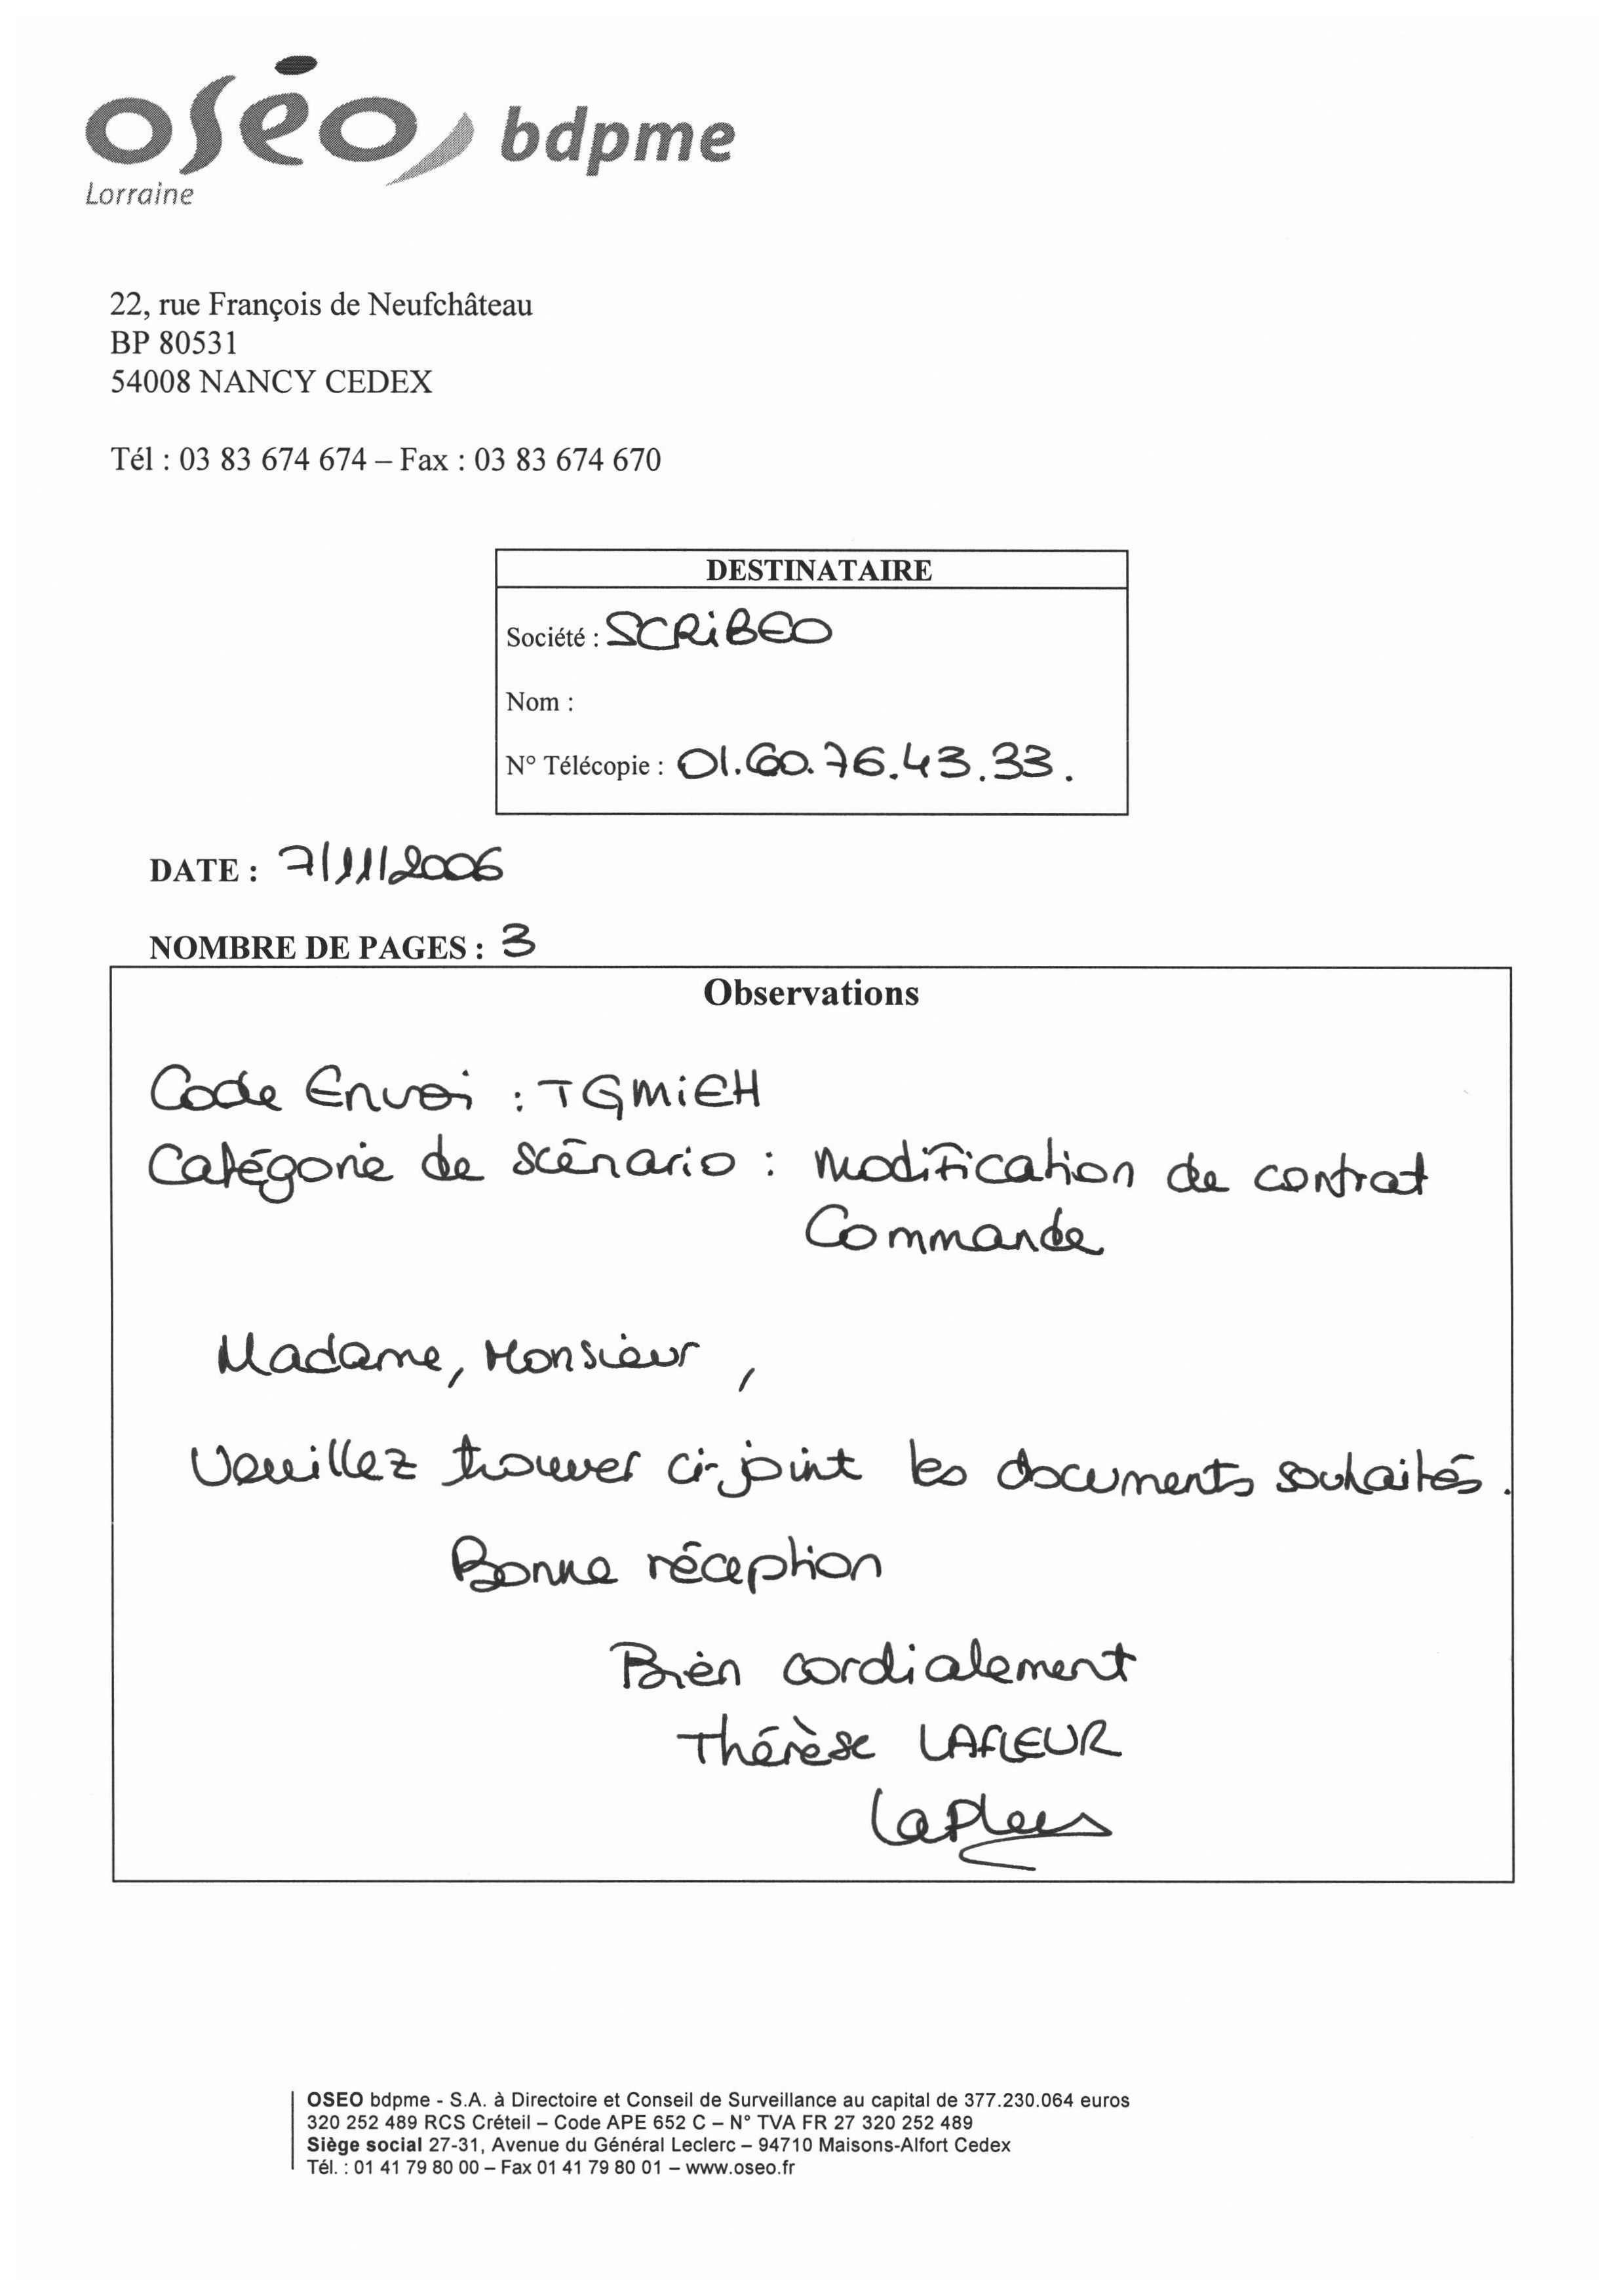 oséo bdpme
Lorraine
22, rue François de Neufchâteau
BP 80531
54008 NANCY CEDEX
Tél : 03 83 674 674 – Fax : 03 83 674 670
DESTINATAIRE
Société : SCRiBEO
Nom :
N° Télécopie : 01.60.76.43.33.
DATE : 7/11/2006
NOMBRE DE PAGES : 3
Observations
Code Envoi : TGMiEH
Catégorie de scénario : modification de contrat
Commande
Madame, Monsieur,
Veuillez trouver ci-joint les documents souhaités.
Bonne réception
Bien cordialement
Thérèse LAFLEUR
Lafleur
OSEO bdpme - S.A. à Directoire et Conseil de Surveillance au capital de 377.230.064 euros
320 252 489 RCS Créteil – Code APE 652 C – N° TVA FR 27 320 252 489
Siège social 27-31, Avenue du Général Leclerc – 94710 Maisons-Alfort Cedex
Tél. : 01 41 79 80 00 – Fax 01 41 79 80 01 – www.oseo.fr